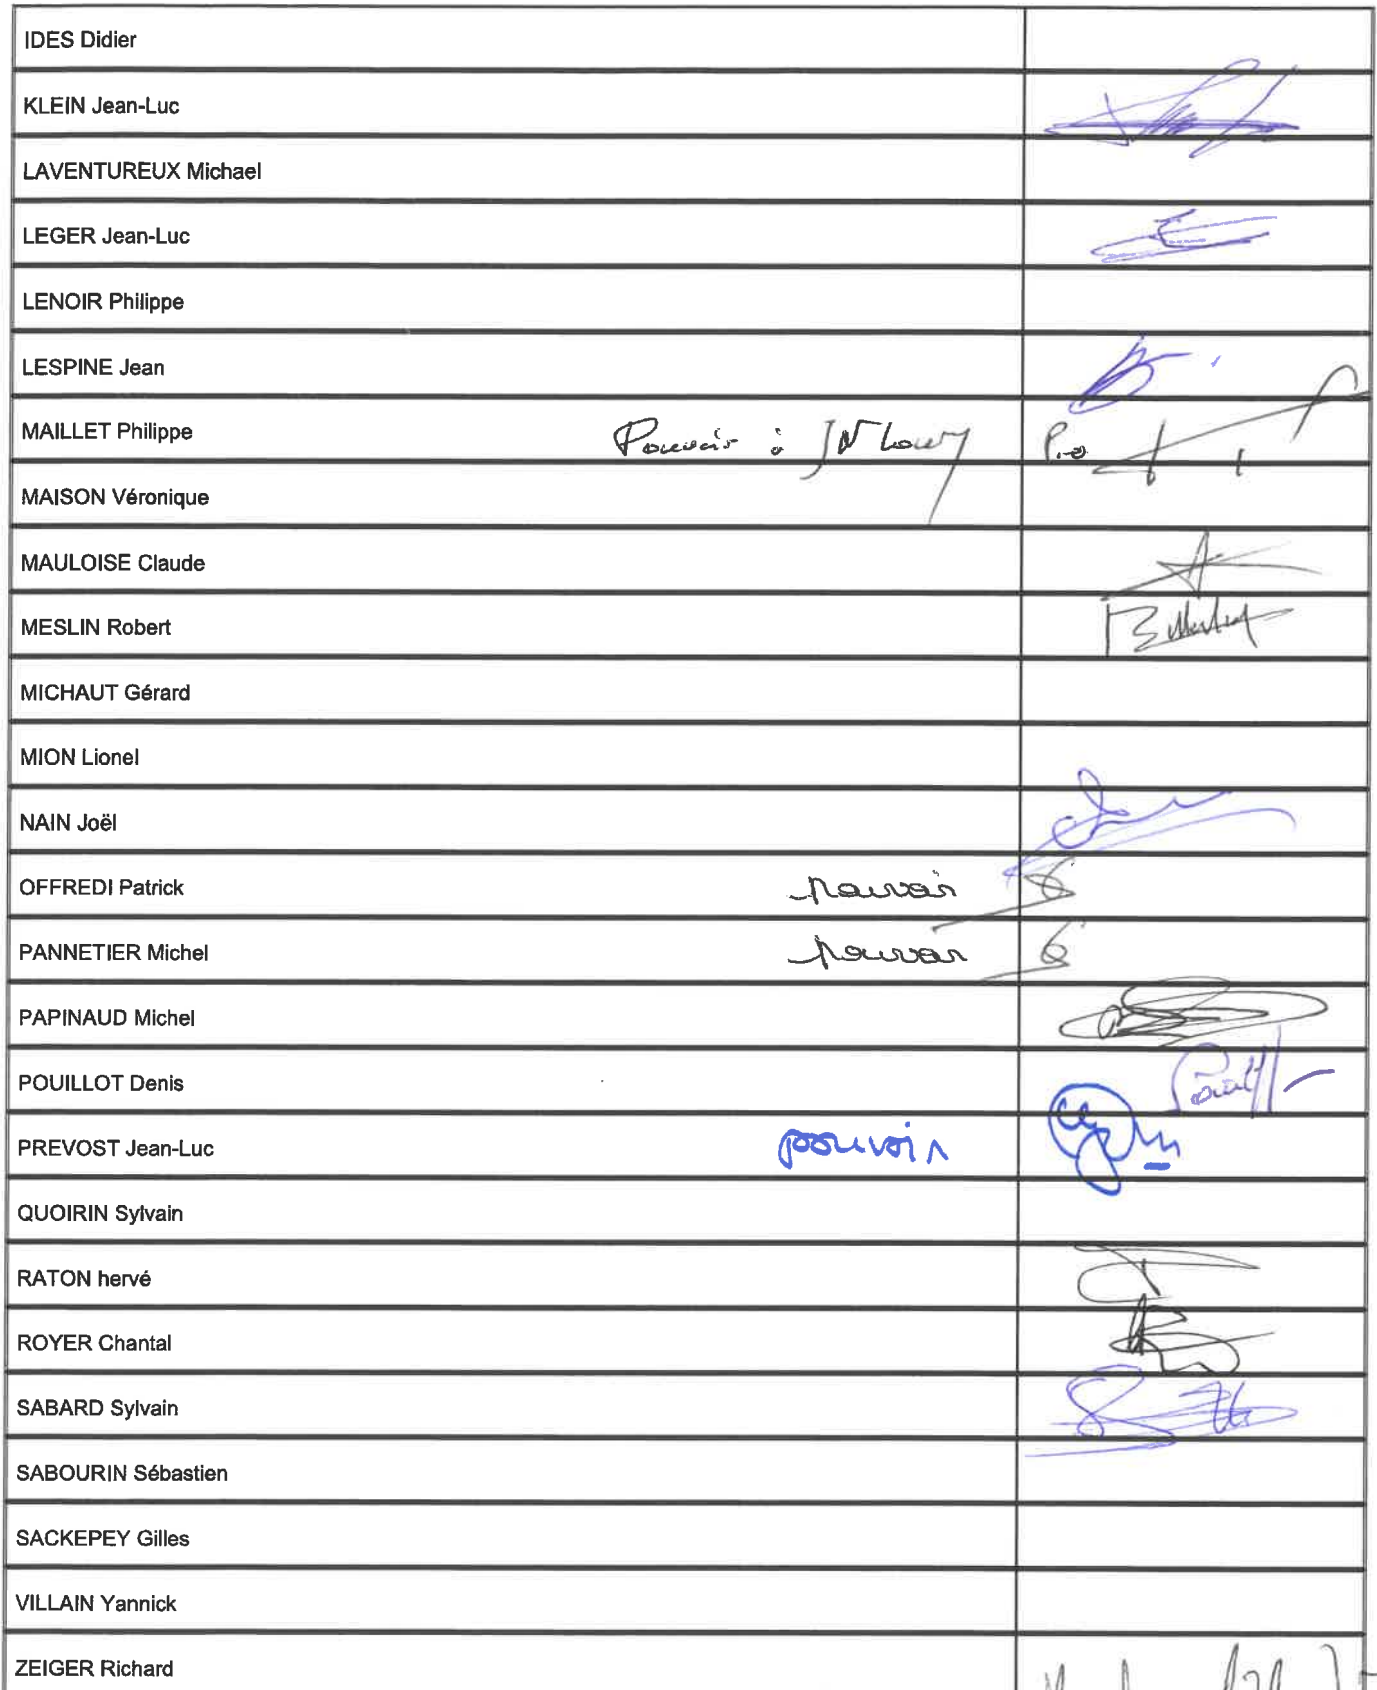 IDES Didier
KLEIN Jean-Luc
LAVENTUREUX Michael
LEGER Jean-Luc
LENOIR Philippe
LESPINE Jean
MAILLET Philippe Pouvoir à JN P.o
MAISON Véronique
MAULOISE Claude
MESLIN Robert
MICHAUT Gérard
MION Lionel
NAIN Joël
OFFREDI Patrick pouvoir
PANNETIER Michel pouvoir
PAPINAUD Michel
POUILLOT Denis
PREVOST Jean-Luc pouvoir
QUOIRIN Sylvain
RATON hervé
ROYER Chantal
SABARD Sylvain
SABOURIN Sébastien
SACKEPEY Gilles
VILLAIN Yannick
ZEIGER Richard